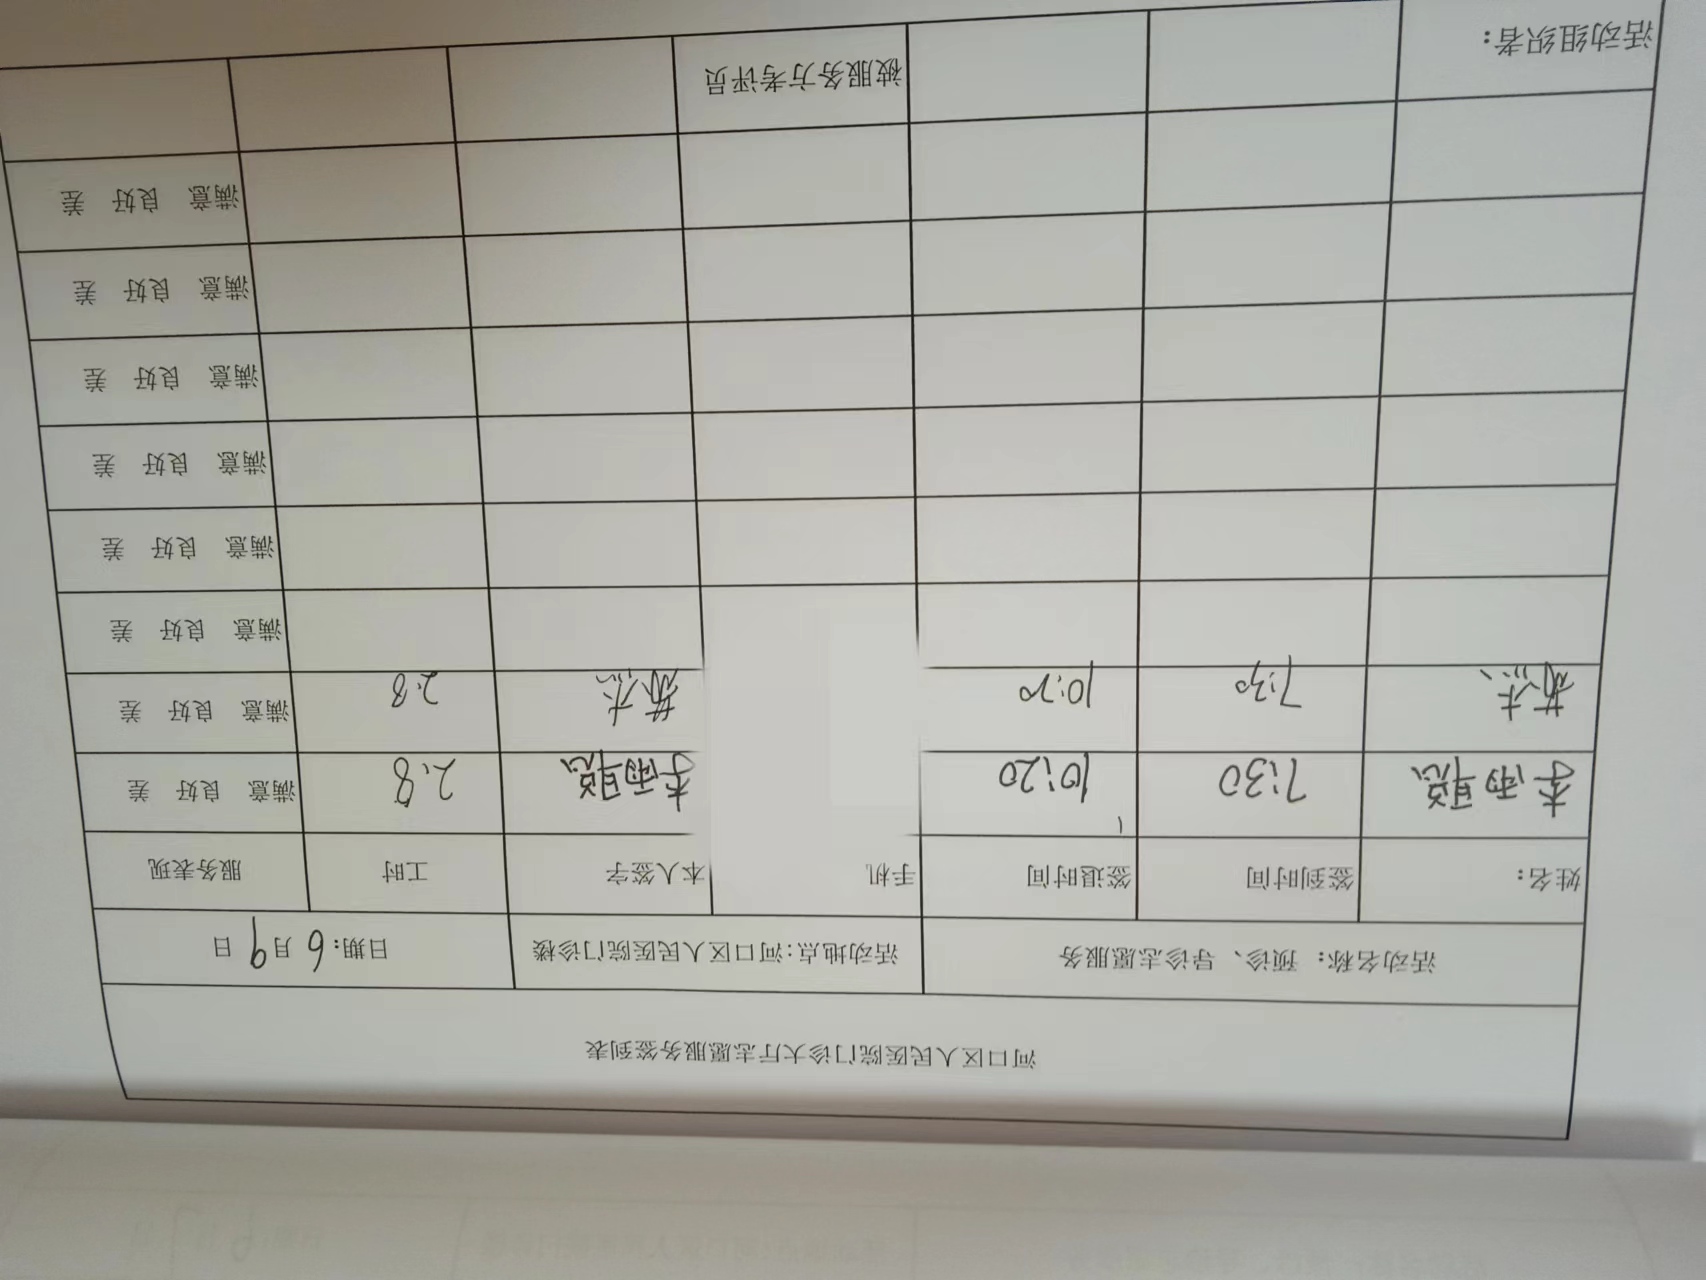 河口区人民医院门诊大厅志愿服务签到表
活动名称：预诊、导诊志愿服务 活动地点：河口区人民医院门诊楼 日期：6月9日
姓名： 签到时间 签退时间 手机 本人签字 工时 服务表现
李雨聪 7:30 10:20 李雨聪 2.8 满意 良好 差
7:30 10:20 2.8 满意 良好 差
满意 良好 差
满意 良好 差
满意 良好 差
满意 良好 差
满意 良好 差
满意 良好 差
活动组织者： 被服务方考评员